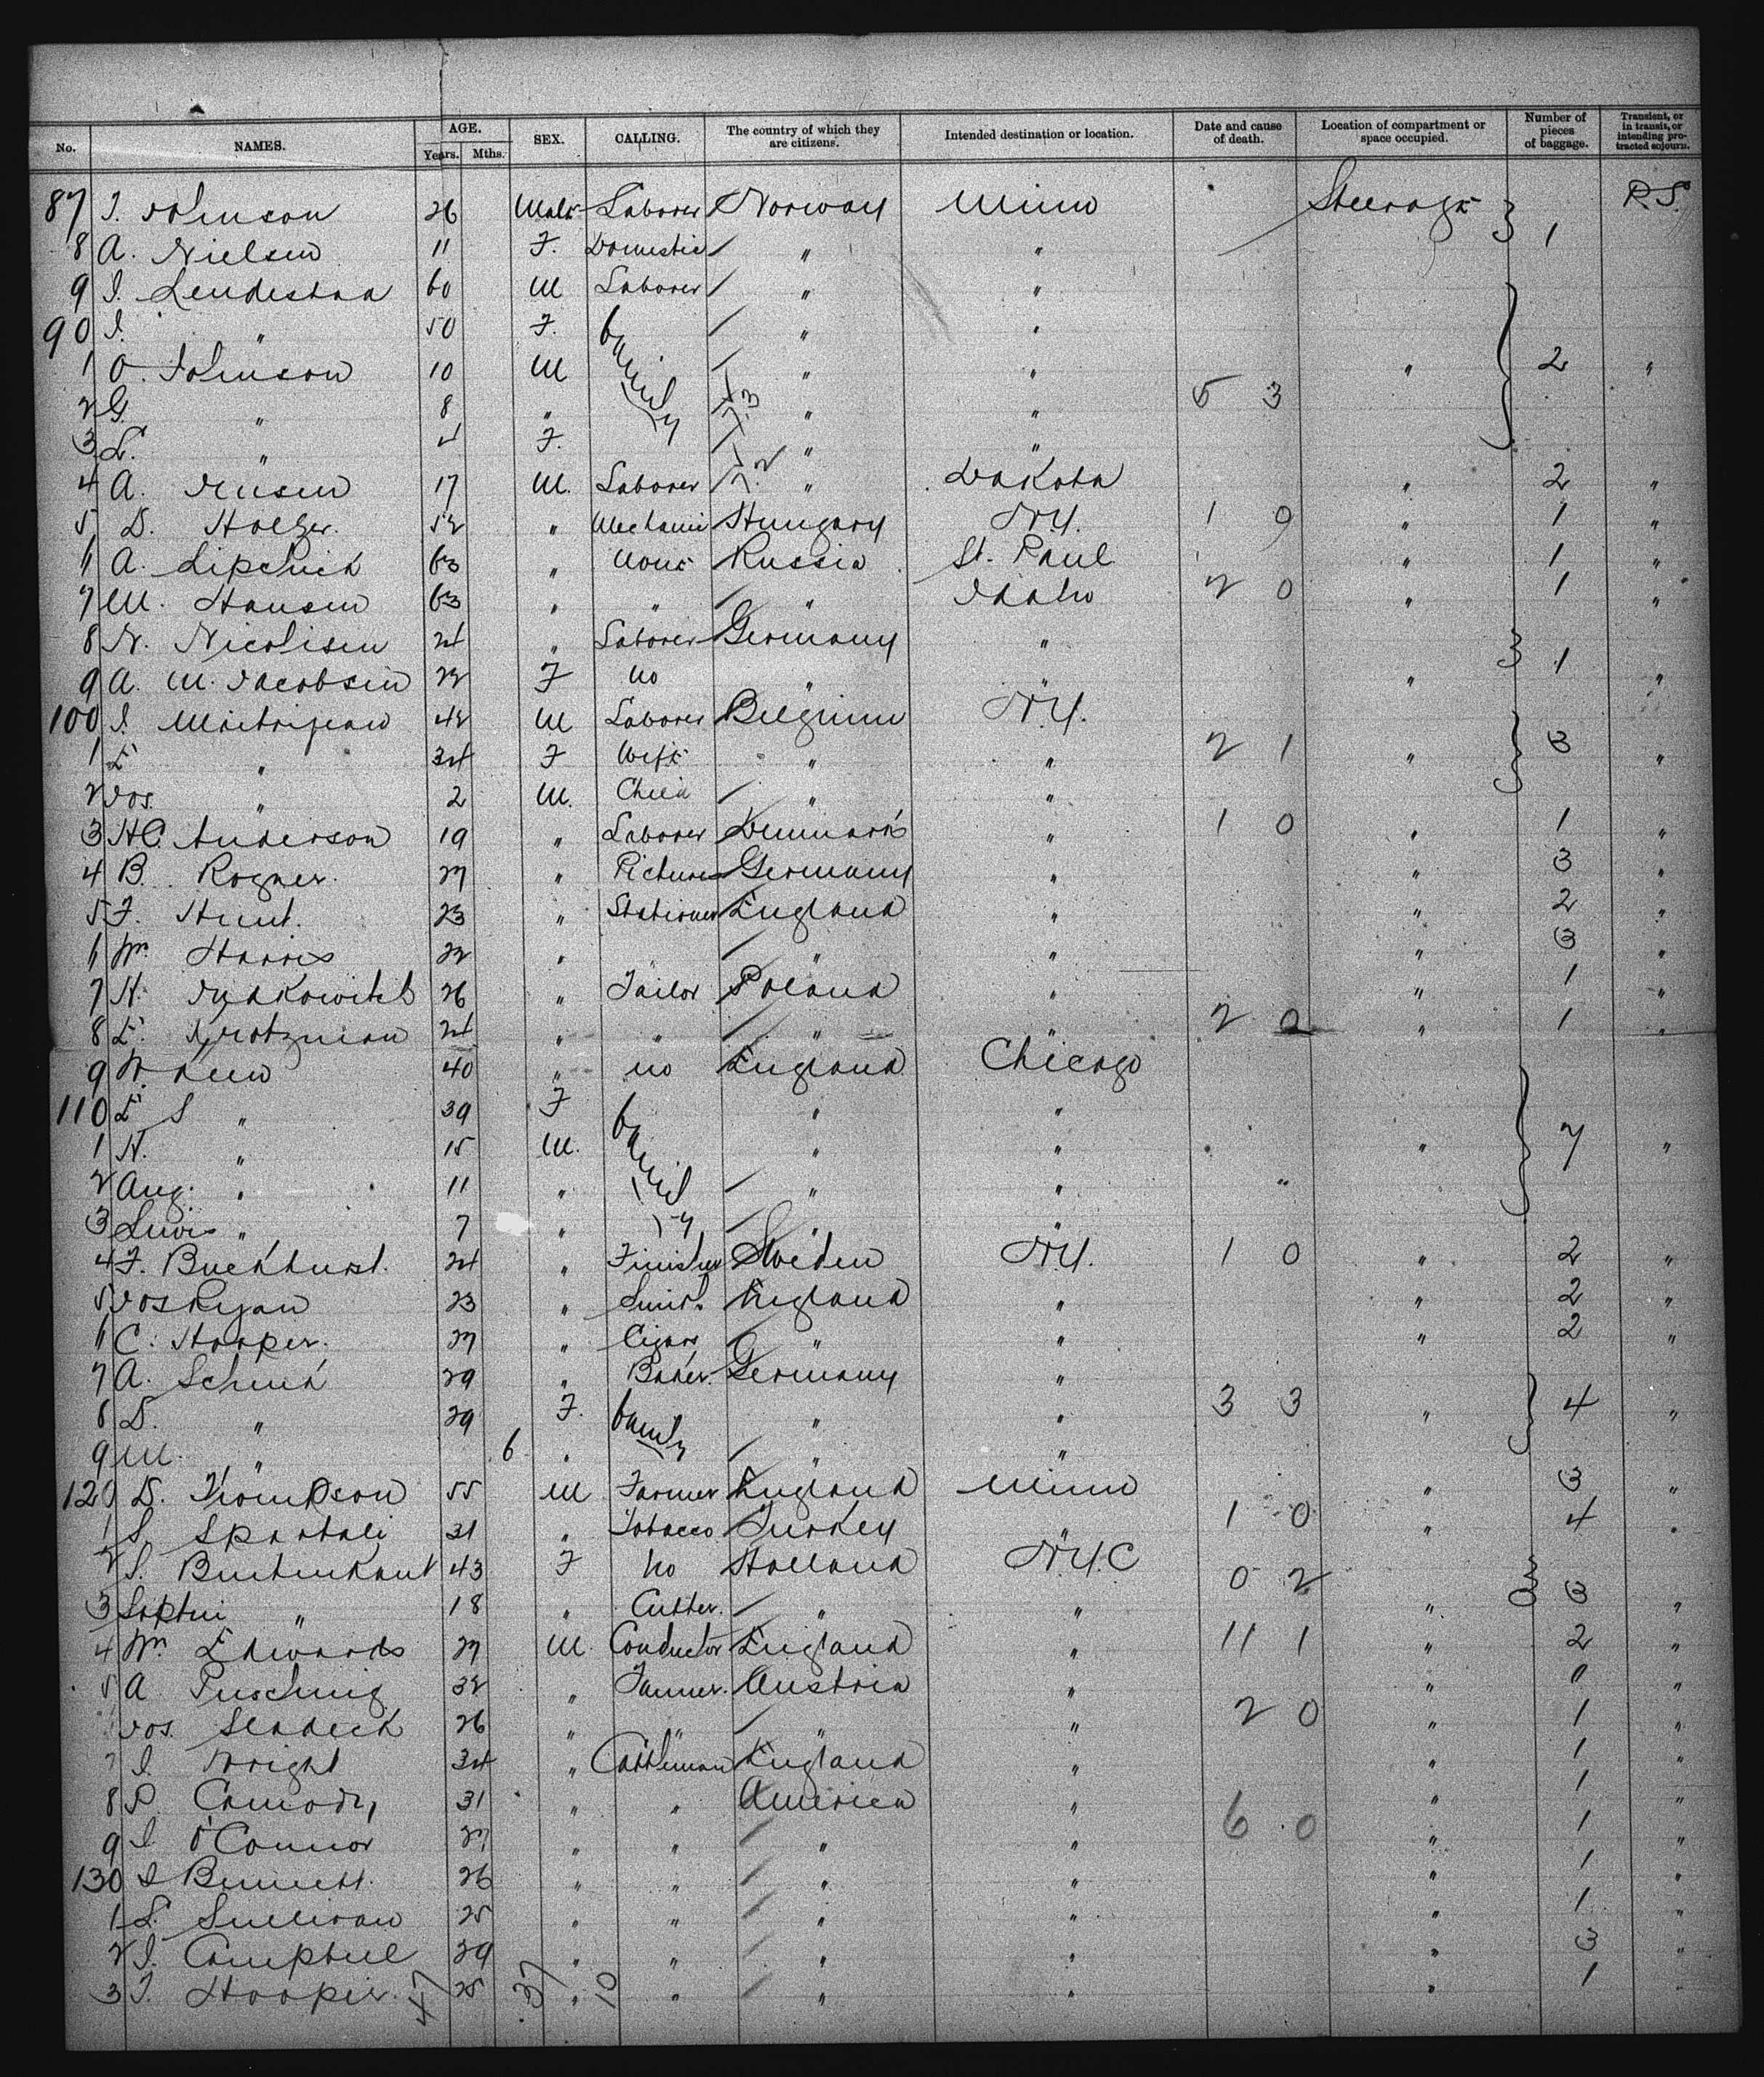 No. NAMES. AGE. Years. Mths. SEX. CALLING. The country of which they are citizens. Intended destination or location. Date and cause of death. Location of compartment or space occupied. Number of pieces of baggage. Transient, or in transit, or intending protracted sojourn.
87 J. Johnson 26 Male Laborer Norway Minn Steerage P.S.
8 A. Nielsen 11 F. Domestic " " 1
9 J. 60 M Laborer " "
90 J. " 50 F. family " "
1 O. Johnson 10 M " " " 2 "
2 G. " 8 " " " 5 3
3 L. " 4 F. " "
4 A. 17 M. Laborer " Dakota " 2 "
5 D. 52 " Mechanic Hungary N.Y. 1 0 " 1 "
6 A. Lipchick 63 " None Russia St. Paul " 1 "
7 M. Hansen 63 " " " Idaho 2 0 " 1 "
8 N. Nicolisen 24 " Laborer Germany "
9 A. M. Jacobsen 22 F no " " " 1 "
100 J. 42 M Laborer Belgium N.Y.
1 E " 34 F Wife " " 2 1 " 3 "
2 Jos. " 2 M. Child " "
3 H.C. Anderson 19 " Laborer Denmark " 1 0 " 1 "
4 B. Rogner. 27 " Germany " " 3 "
5 F. Hunt. 23 " Stationer England " " 2 "
6 Wm Harris 22 " " " " 3 "
7 H. 26 " Tailor Poland " " 1 "
8 E. 24 " " " " 2 0 " 1 "
9 W. 40 " no England Chicago
110 E S " 39 F family " "
1 H. " 15 M. " " " 7 "
2 Aug. " 11 " " " "
3 Lewis " 7 " " "
4 F. Buckhurst. 24 " Finisher Sweden N.Y. 1 0 " 2 "
5 Jos Ryan 23 " Smith England " " 2 "
6 C. Hooper. 27 " Cigar " " " 2 "
7 A. Schenk 29 " Baker. Germany "
8 D. " 29 F. family " " 3 3 " 4 "
9 M. " 6 " " "
120 D. Thompson 55 M Farmer England Minn " 3 "
1 S. Spartali 31 " Tobacco Turkey " 1 0 " 4 "
2 S. 43 F no Holland N.Y.C 0 2
3 Sophie " 18 " Cutter. " " " 3 "
4 Wm Edwards 27 M. Conductor England " 11 1 " 2 "
5 A. 32 " Austria " " "
Jos. 26 " " " " 2 0 " 1 "
7 J. Wright 34 " Cattleman England " " 1 "
8 P. 31 " " America " " 1 "
9 J O'Connor 27 " " " " 6 0 " 1 "
130 J Bennett. 26 " " " " " 1 "
1 L. Sullivan 25 " " " " " 1 "
2 J. Campbell 29 " " " " " 3 "
3 T. Hooper. 25 " " " " " 1
47 37 10